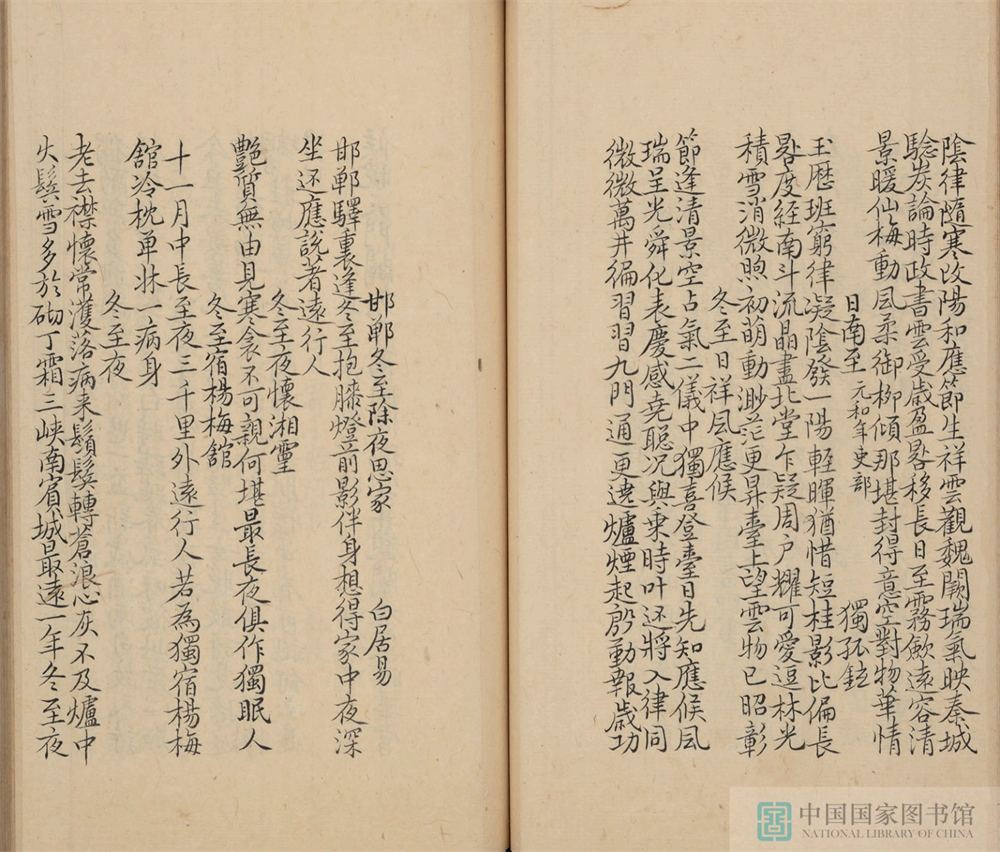 陰律隨寒改陽和應節生祥雲觀魏闕瑞氣映秦城
驗炭論時政書雲受歲盈晷移長日至霧歛遠容清
景暖仙梅動風柔御柳傾那堪封得意空對物華情
日南至 元和年吏部 獨孤鉉
玉歷班窮律凝陰發一陽輕暉猶惜短桂影比偏長
晷度經南斗流晶盡北堂乍疑周户耀可愛逗林光
積雪消微煦初萌動渺茫更昇臺上望雲物已昭彰
冬至日祥風應候
節逢清景空占氣二儀中獨喜登臺日先知應候風
瑞呈光舜化表慶感堯聰况與乗時叶还將入律同
微微萬井徧習習九門通更遶爐煙起殷勤報歲功
邯鄲冬至除夜思家 白居易
邯鄲驛裏逢冬至抱膝燈前影伴身想得家中夜深
坐还應説着遠行人
冬至夜懷湘靈
艶質無由見寒衾不可親何堪最長夜俱作獨眠人
冬至宿楊梅舘
十一月中長至夜三千里外遠行人若為獨宿楊梅
舘冷枕单牀一病身
冬至夜
老去襟懷常濩落病来鬚髮轉蒼浪心灰不及爐中
火鬂雪多於砌下霜三峡南賓城最遠一年冬至夜
中国国家图书馆
NATIONAL LIBRARY OF CHINA